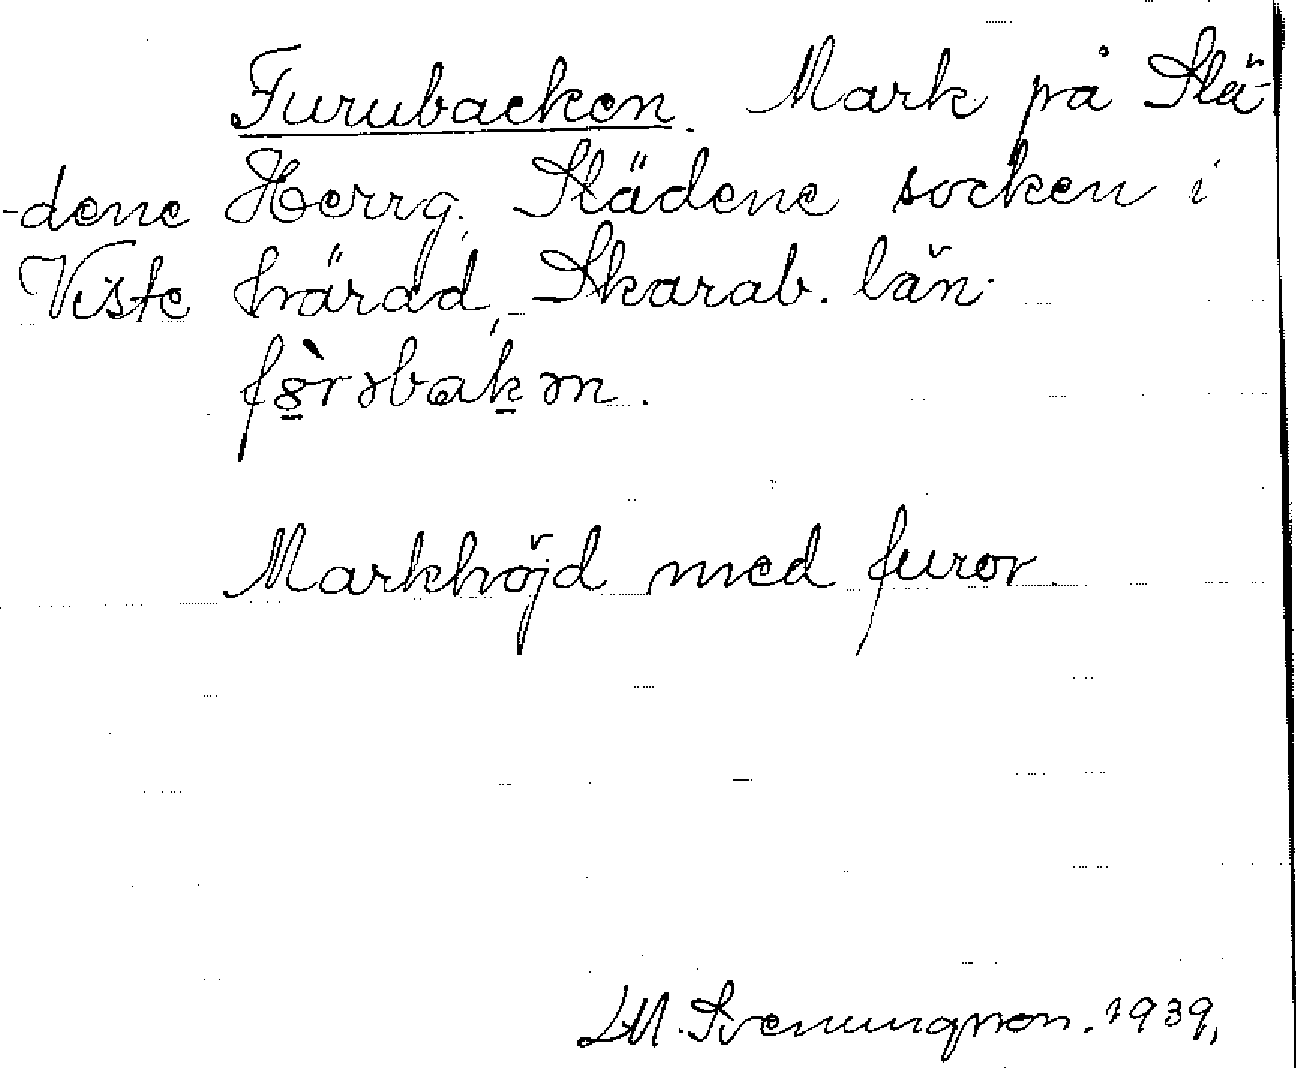 Furubacken. Mark på Slä-
-dene Herrg. Slädene socken i
Viste härad, Skarab. län.
Markhöjd med furor.
LM. Svenungsson. 1939,